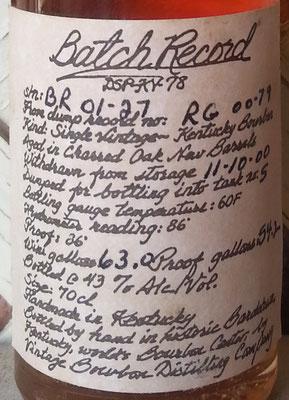 Batch Record
DSP-KY-78
S/n: BR 01-27
From dump record no: RG 00-79
Kind: Single Vintage ~ Kentucky Bourbon
Aged in Charred Oak New Barrels
Withdrawn from storage 11-10-00
Dumped for bottling into tank no: 5
Bottling gauge temperature: 60F
Hydrometer reading: 86°
Proof: 86°
Wine gallons 63.0 Proof gallons 54.
Bottled @ 43 % Alc/Vol.
Size: 70cl
Handmade in Kentucky
Bottled by hand in historic Bardstown,
Kentucky, world's Bourbon Center, by
Vintage Bourbon Distilling Company